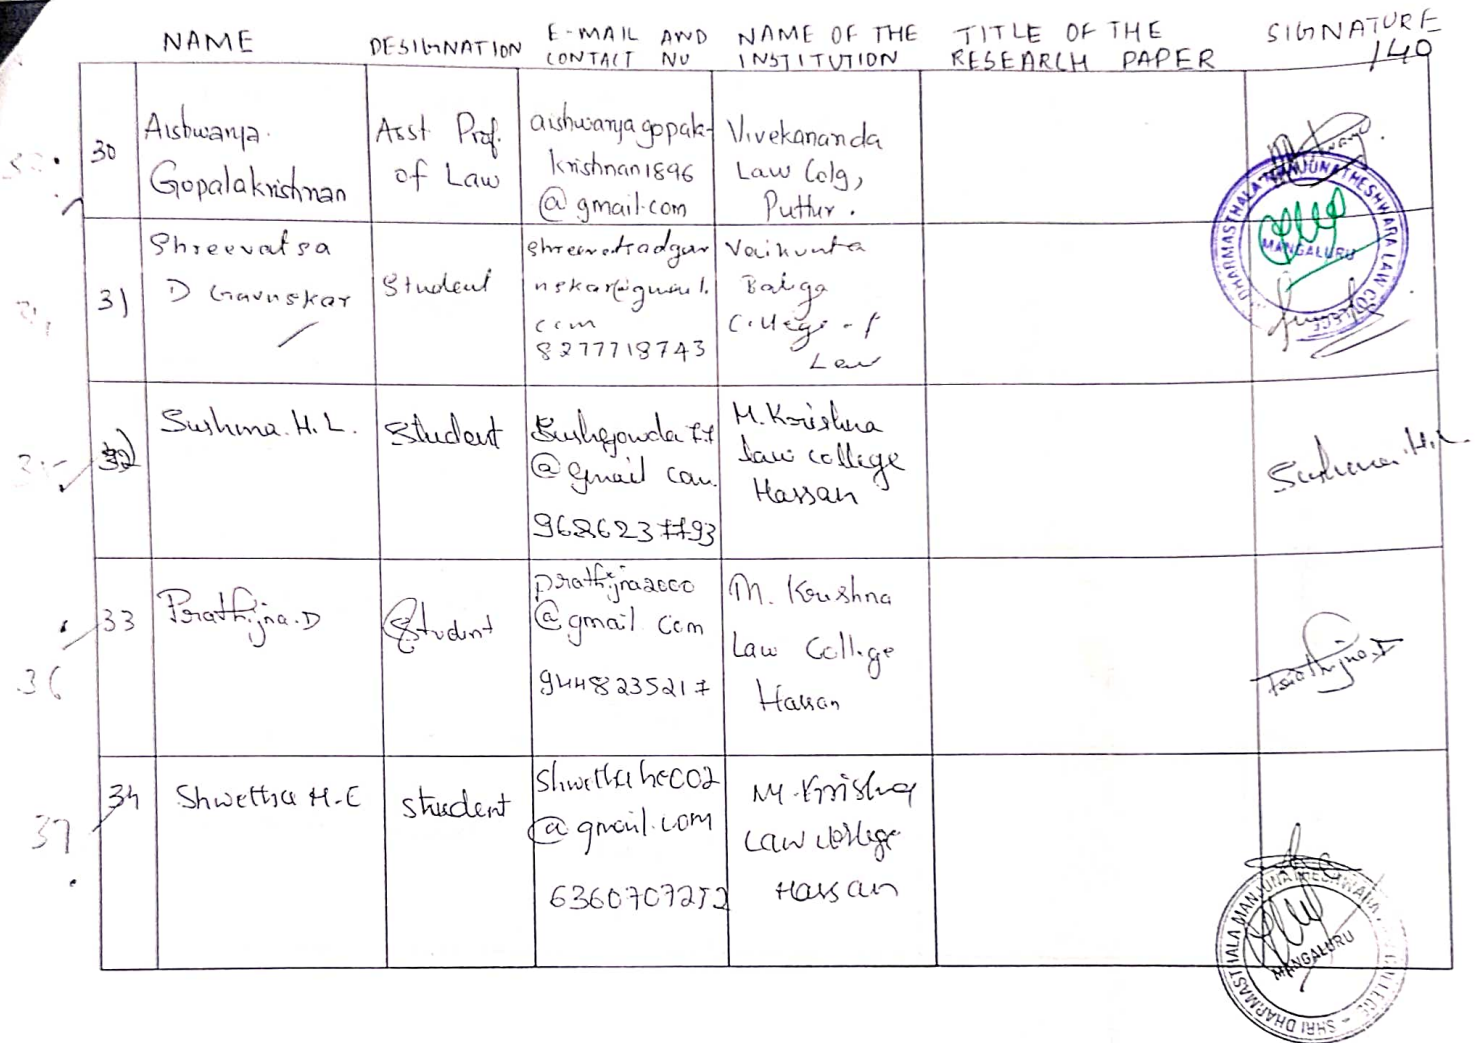 NAME
DESIGNATION
E-MAIL AND
CONTACT NO
NAME OF THE
INSTITUTION
TITLE OF THE
RESEARCH PAPER
SIGNATURE
140
30
Aishwarya
Gopalakrishnan
Asst Prof.
of Law
aishwaryagopak-
krishnan1896
@gmail.com
Vivekananda
Law Colg,
Puttur.
31)
Shreevatsa
D Gavnskar
Student
com
8277718743
Vaikunta
Baliga
College of
Law
32)
Sushma.H.L.
Student
@gmail com.
M.Krishna
law college
Hassan
Sushma.H.L
33
Prathijna.D
Student
prathijna2000
@gmail com
9448235217
M. Krushna
Law College
Hassan
Prathijna.D
36
34
Shwetha H.C
student
Shwethahc002
@gmail.com
6360707252
M.Krishna
Law college
Hassan
37
SHRI DHARMASTHALA MANJUNATHESHWARA LAW COLLEGE
MANGALURU
SHRI DHARMASTHALA MANJUNATHESHWARA LAW COLLEGE
MANGALURU